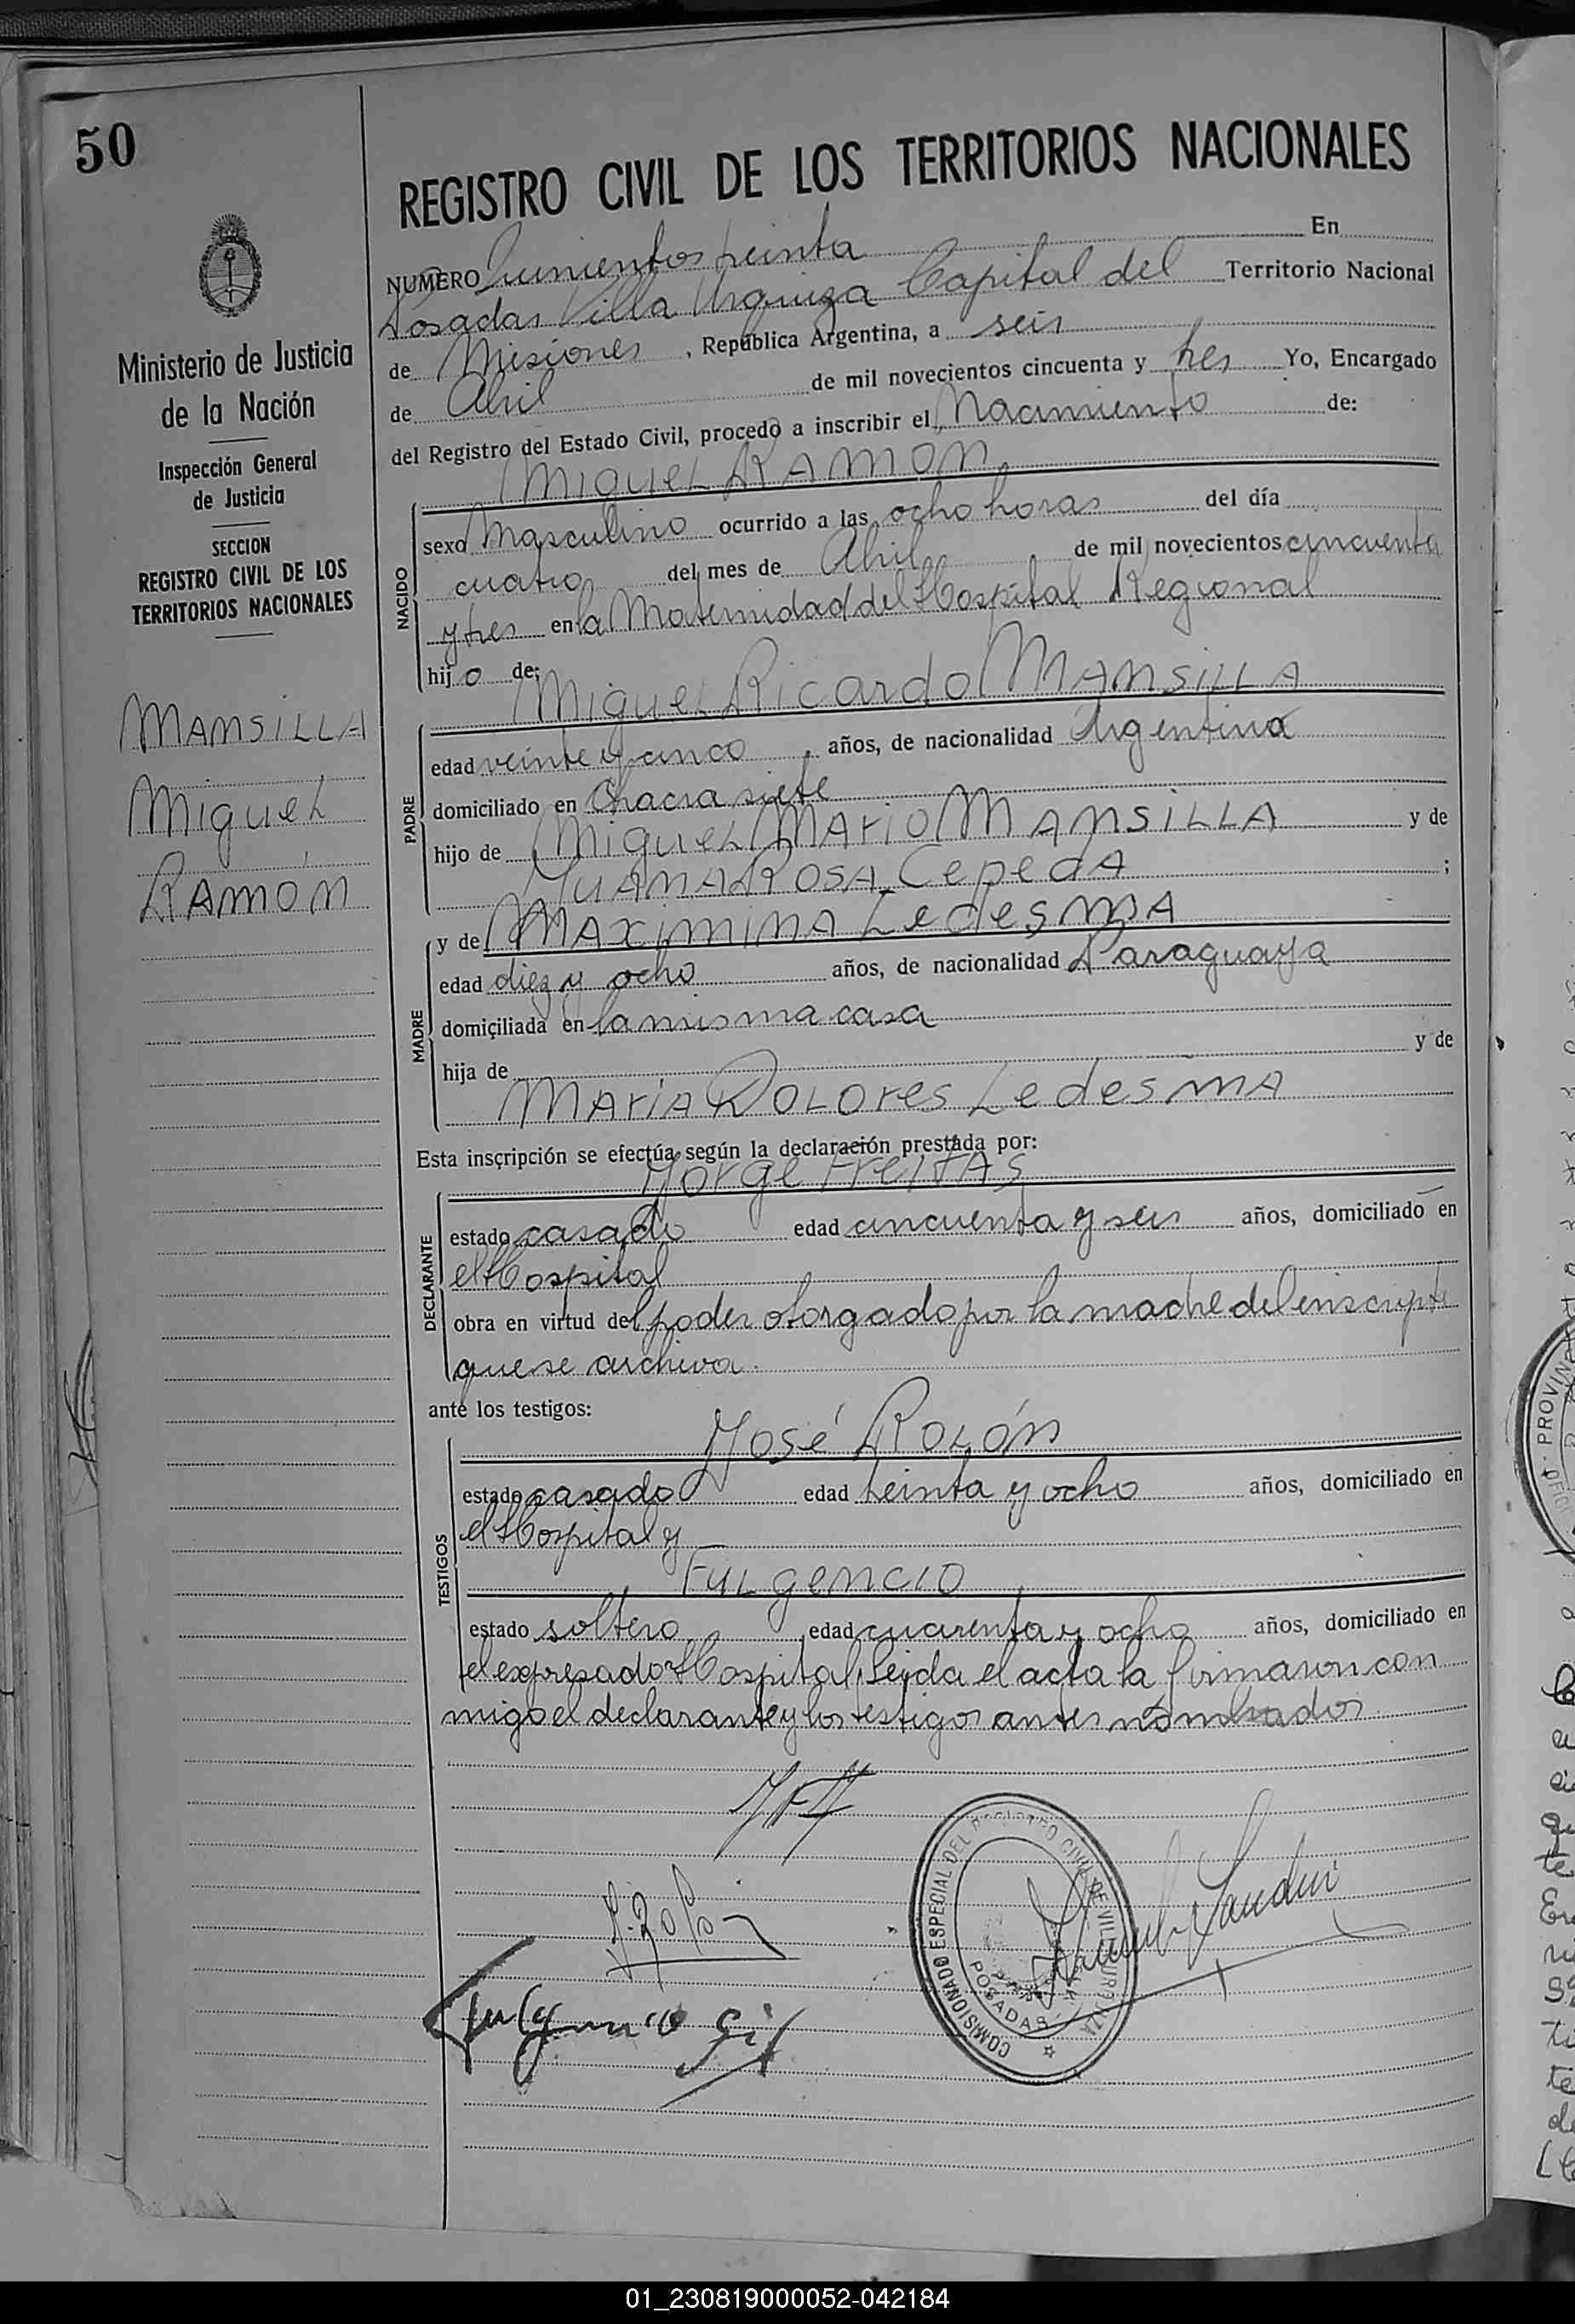 50
REGISTRO CIVIL DE LOS TERRITORIOS NACIONALES
Ministerio de Justicia
de la Nación
Inspección General
de Justicia
SECCION
REGISTRO CIVIL DE LOS
TERRITORIOS NACIONALES
MANSILLA
Miguel
RAMÓN
NUMERO Quinientos treinta En
Posadas Villa Urquiza Capital del Territorio Nacional
de Misiones, República Argentina, a seis
de Abril de mil novecientos cincuenta y tres Yo, Encargado
del Registro del Estado Civil, procedo a inscribir el Nacimiento de:
Miguel RAMON
NACIDO
sexo Masculino ocurrido a las ocho horas del día
cuatro del mes de Abril de mil novecientos cincuenta
y tres en la Maternidad del Hospital Regional
hijo de:
Miguel Ricardo MANSILLA
PADRE
edad veinte y cinco años, de nacionalidad Argentina
domiciliado en Chacra siete
hijo de Miguel Mario MANSILLA y de
JUANA ROSA Cepeda ;
MADRE
y de MAXIMINA Ledesma
edad diez y ocho años, de nacionalidad Paraguaya
domiciliada en la misma casa
hija de y de
Maria Dolores Ledesma
Esta inscripción se efectúa según la declaración prestada por:
Jorge Freitas
DECLARANTE
estado casado edad cincuenta y seis años, domiciliado en
el Hospital
obra en virtud del poder otorgado por la madre del inscripto
que se archiva.
ante los testigos:
José Rolón
TESTIGOS
estado casado edad treinta y ocho años, domiciliado en
el Hospital y
Fulgencio
estado soltero edad cuarenta y ocho años, domiciliado en
el expresado Hospital. Leida el acta la firmaron con
migo el declarante y los testigos antes nombrados
J. Rolón
Fulgencio Gil
COMISIONADO ESPECIAL DEL REGISTRO CIVIL DE VILLA URQUIZA
POSADAS
PROVIN
OFICI
01_230819000052-042184